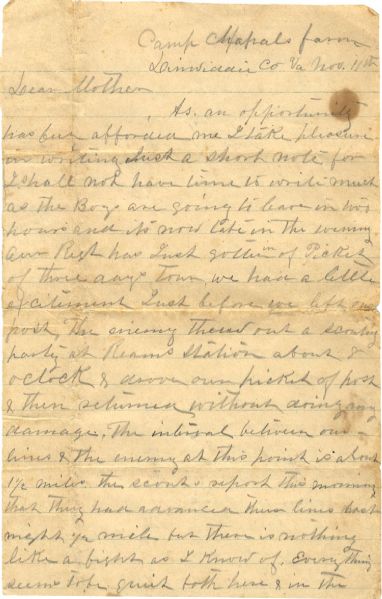 Camp Chapals farm
Dinwiddie Co Va Nov. 11th
Dear Mother
As an opportunity
has been afforded me I take pleasure
in writing Just a short note for
I shall not have time to write much
as the Boys are going to leave in two
hours and its now late in the evening
Our Regt has Just gotten in of Picket
of three days tour, we had a little
excitement Just before we left our
post The enemy threw out a scouting
party at Reams Station about 8
oclock & drove our picket of post
& then returned without doing any
damage. The interval between our
lines & the enemy at this point is about
1½ miles. the scouts report this morning
that they had advanced their lines last
night ½ mile but there is nothing
like a fight as I know of. Every thing
seems to be quiet both here & in the